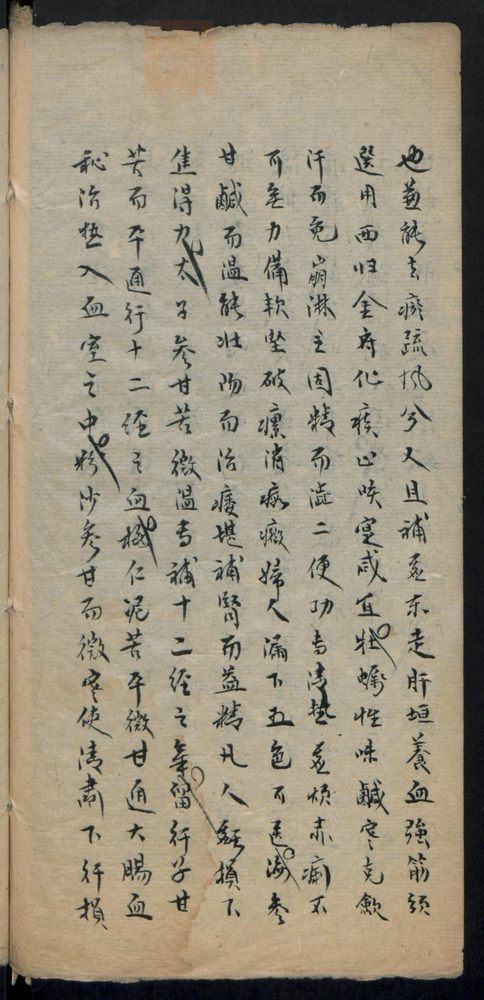 也萸能去瘀疏風兮又且補益东走肝垣養血強筋须
選用西归金府化痰止咳寔咸宜牡蠣性味鹹寒克歛
汗而免崩淋主固精而澁二便功专清热并烦赤痢不
可無力備軟坚破瘰消痰癥婦人漏下五色可医海参
甘鹹而温能壯陽而治痿堪補腎而益精凡人虧損下
焦得力太子参甘苦微温专補十二经之氣留行子甘
苦而平通行十二经之血桃仁泥苦平微甘通大腸血
秘治热入血室之中粉沙参甘而微寒使清肅下行損